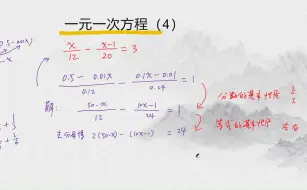 一元一次方程（4）
x/12 - (x-1)/20 = 3
(0.5 - 0.01x)/0.12 - (0.1x - 0.01)/0.24 = 1
分数的基本性质
解: (50-x)/12 - (10x-1)/24 = 1
等式的基本性质
去分母得 2(50-x) - (10x-1) = 24